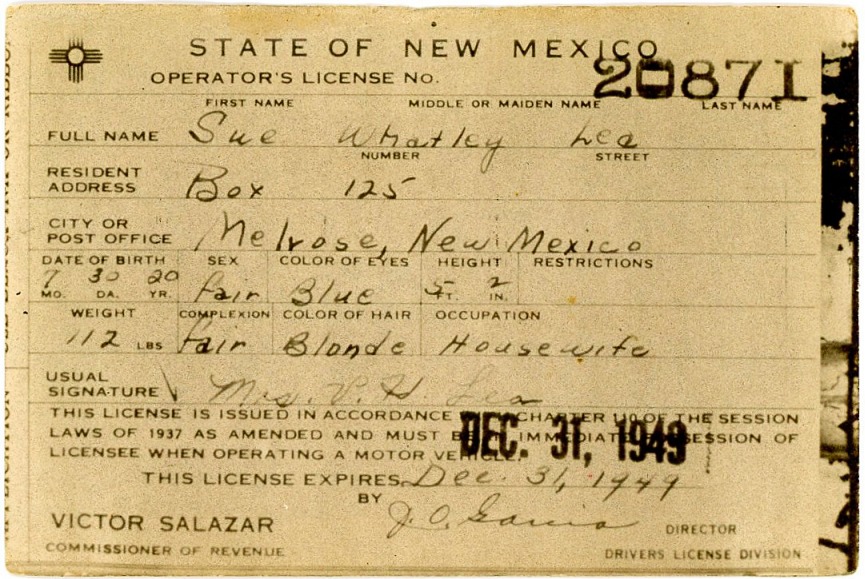 STATE OF NEW MEXICO
OPERATOR'S LICENSE NO. 20871
FIRST NAME MIDDLE OR MAIDEN NAME LAST NAME
FULL NAME Sue Whatley Lea
NUMBER STREET
RESIDENT
ADDRESS Box 125
CITY OR
POST OFFICE Melrose, New Mexico
DATE OF BIRTH SEX COLOR OF EYES HEIGHT RESTRICTIONS
7 30 20 fair Blue 5 2
MO. DA. YR. FT. IN.
WEIGHT COMPLEXION COLOR OF HAIR OCCUPATION
112 LBS fair Blonde Housewife
USUAL
SIGNATURE Mrs. V. H. Lea
THIS LICENSE IS ISSUED IN ACCORDANCE CHAPTER 110 OF THE SESSION
LAWS OF 1937 AS AMENDED AND MUST BE IMMEDIATE POSSESSION OF
LICENSEE WHEN OPERATING A MOTOR VEHICLE.
DEC. 31, 1949
THIS LICENSE EXPIRES Dec. 31, 1949
BY J. O.
VICTOR SALAZAR DIRECTOR
COMMISSIONER OF REVENUE DRIVERS LICENSE DIVISION